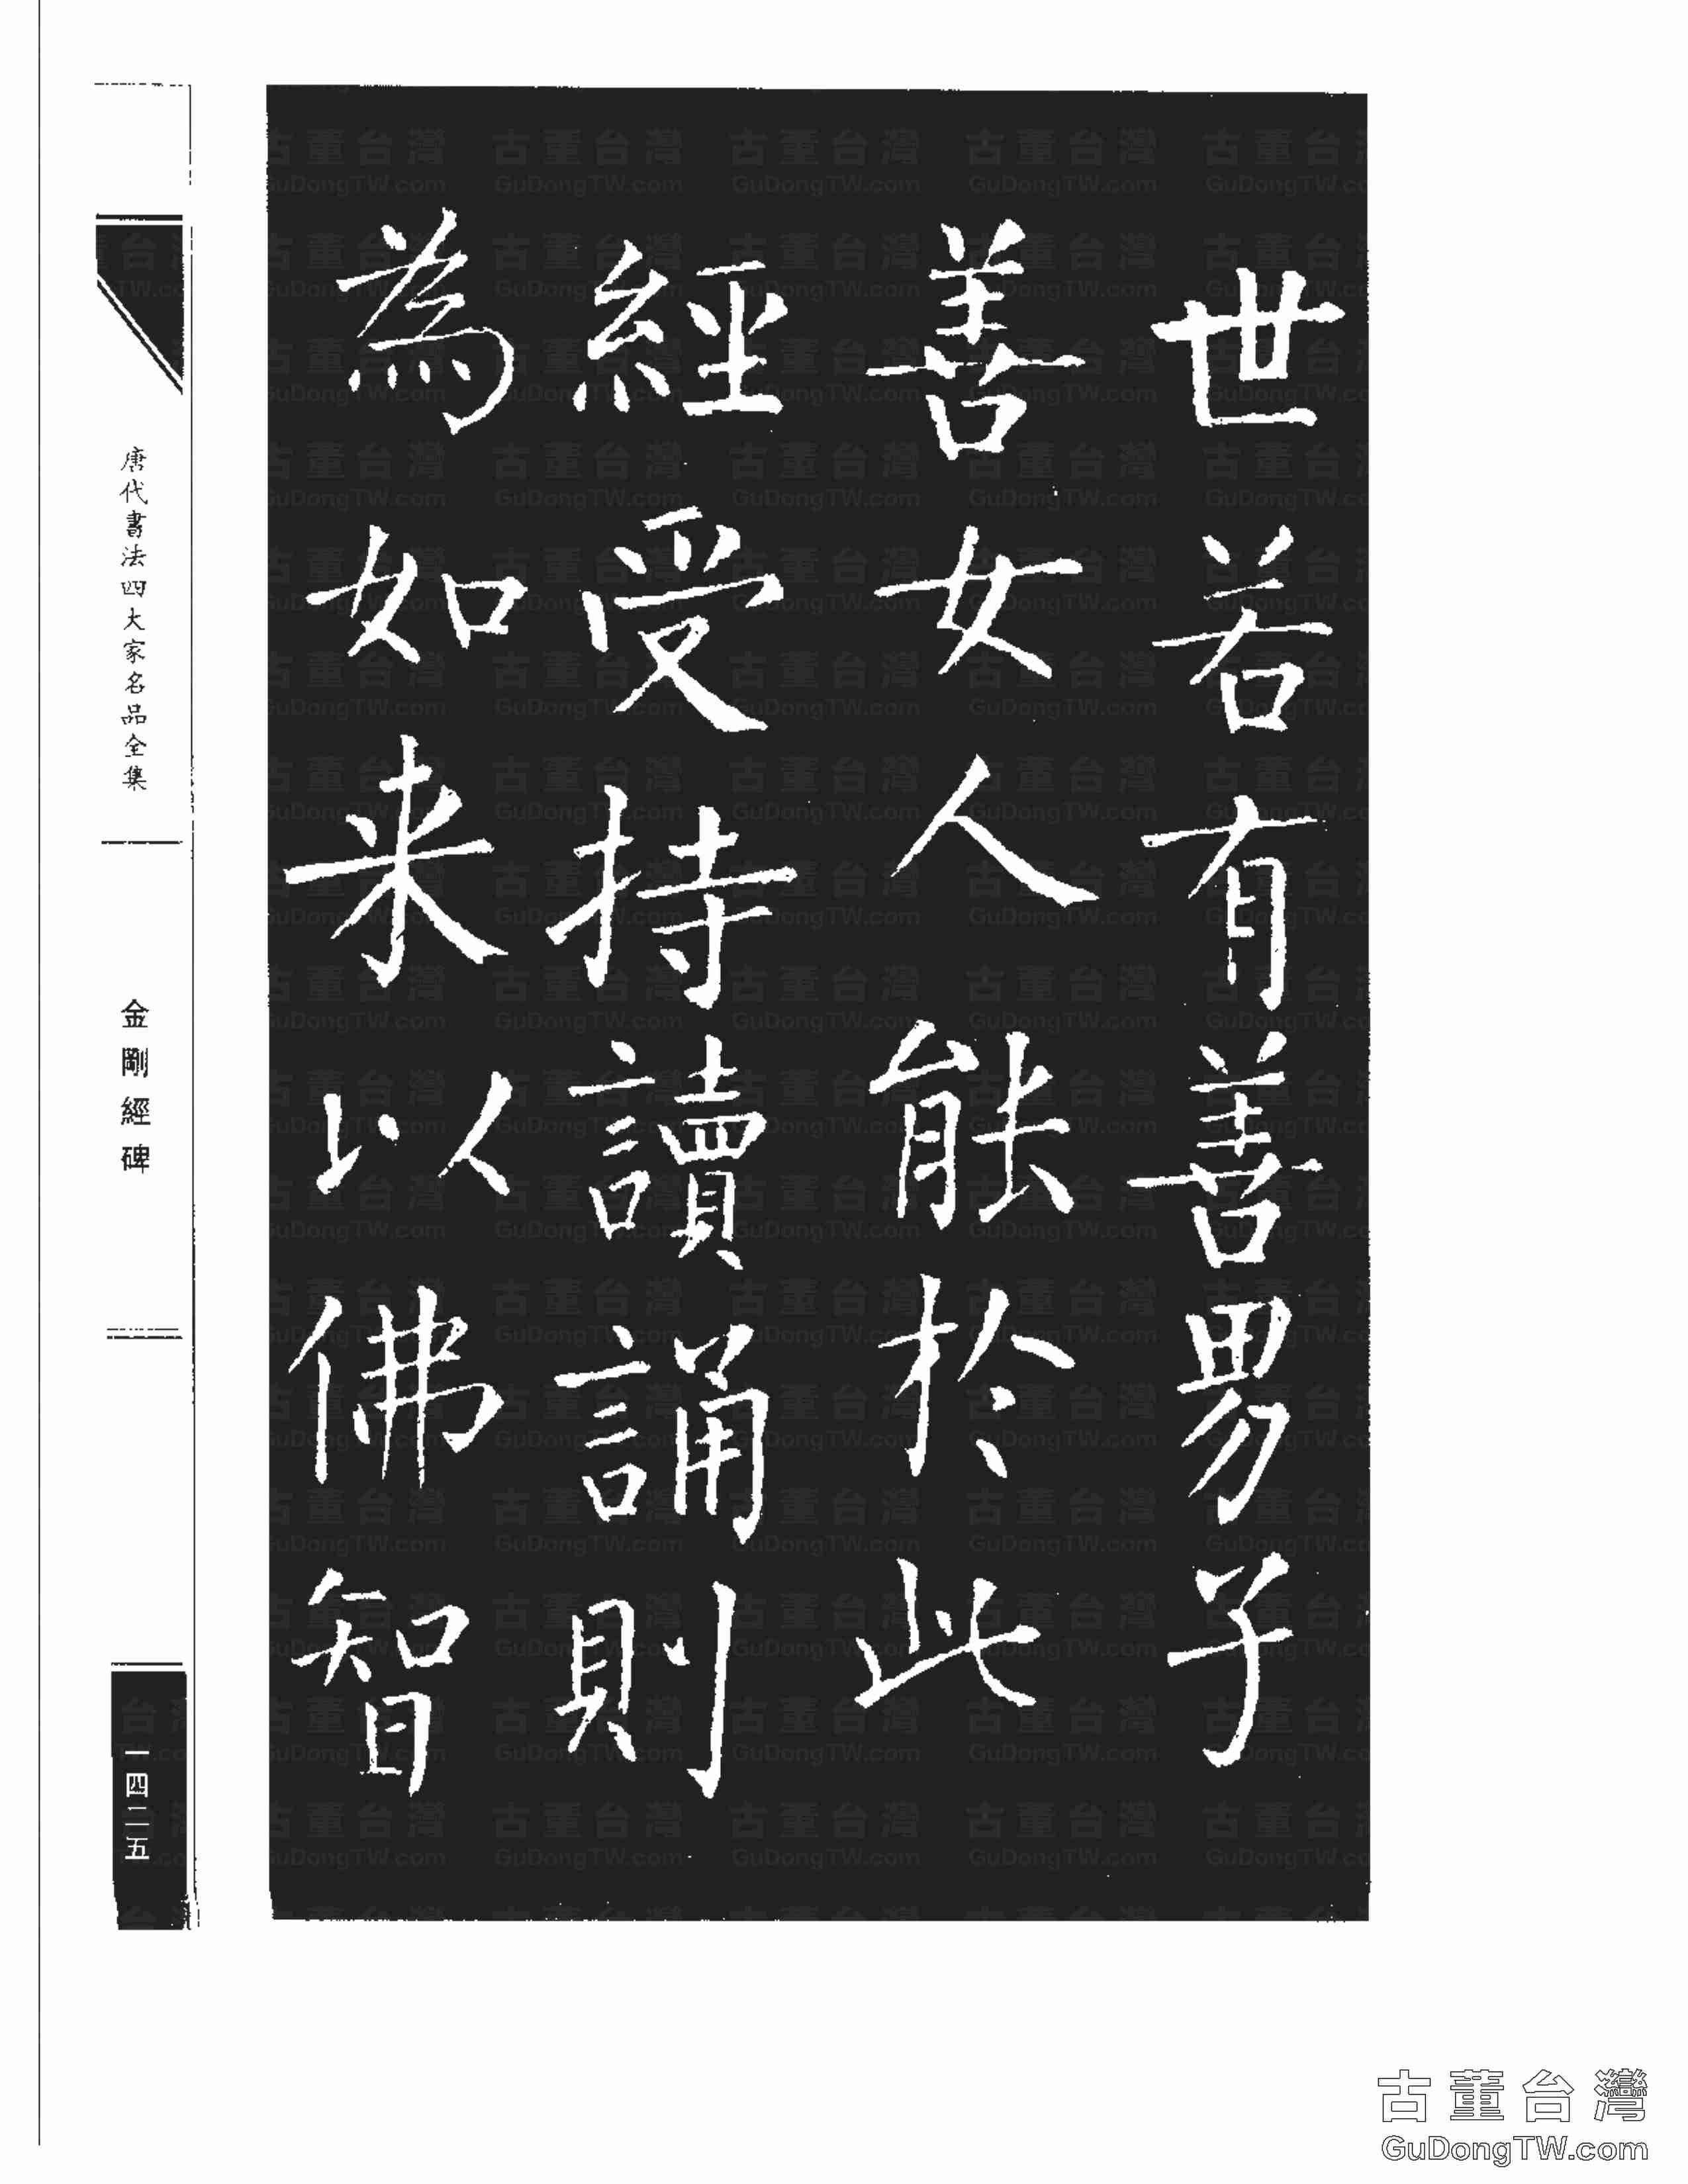 世若有善男子
善女人能於此
經受持讀誦則
為如来以佛智
唐代書法四大家名品全集
金剛經碑
一四二五
古董台灣
GuDongTW.com